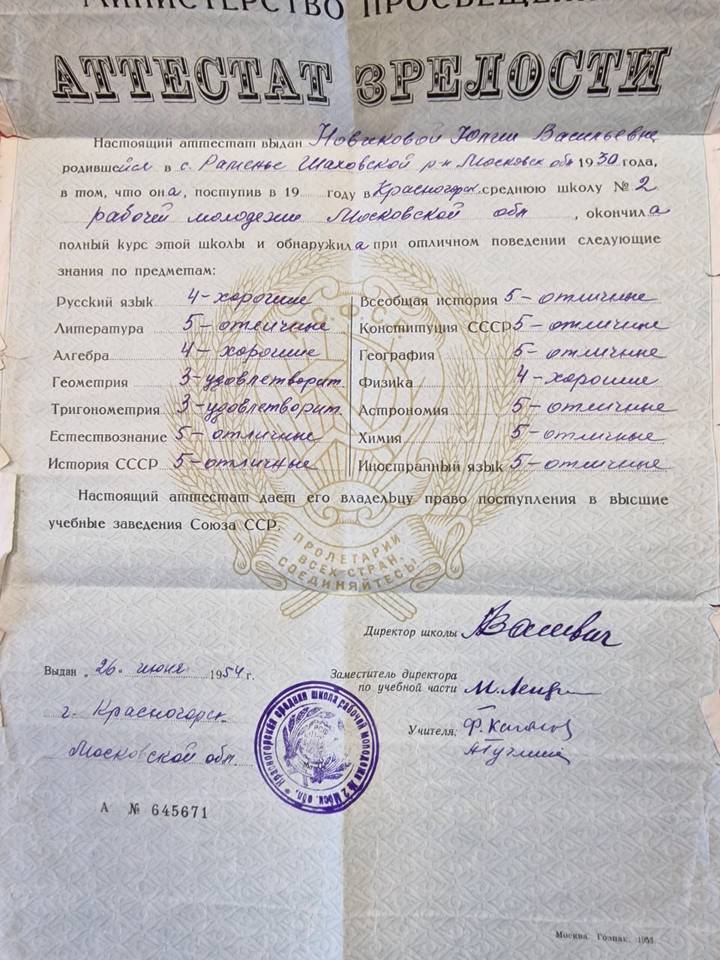 МИНИСТЕРСТВО ПРОСВЕЩЕНИ
АТТЕСТАТ ЗРЕЛОСТИ
Настоящий аттестат выдан Новиковой Юлии Васильевне
родившейся в с. Раменье Шаховской р-н Московск обл 1930 года,
в том, что она, поступив в 19 году в Красногорск. среднюю школу № 2
рабочей молодежи Московской обл , окончила
полный курс этой школы и обнаружила при отличном поведении следующие
знания по предметам:
Русский язык 4-хорошие
Литература 5-отличные
Алгебра 4-хорошие
Геометрия 3-удовлетворит.
Тригонометрия 3-удовлетворит.
Естествознание 5-отличные
История СССР 5-отличные
Всеобщая история 5-отличные
Конституция СССР 5-отличные
География 5-отличные
Физика 4-хорошие
Астрономия 5-отличные
Химия 5-отличные
Иностранный язык 5-отличные
Р.С.Ф.С.Р.
Настоящий аттестат дает его владельцу право поступления в высшие
учебные заведения Союза ССР.
ПРОЛЕТАРИИ
ВСЕХ СТРАН,
СОЕДИНЯЙТЕСЬ!
Директор школы
Выдан „26" июня 1954 г.
Заместитель директора
по учебной части
г. Красногорск
Учителя:
Московской обл.
Красногорская средняя школа рабочей молодежи № 2 Моск. обл.
А № 645671
Москва. Гознак. 1953.